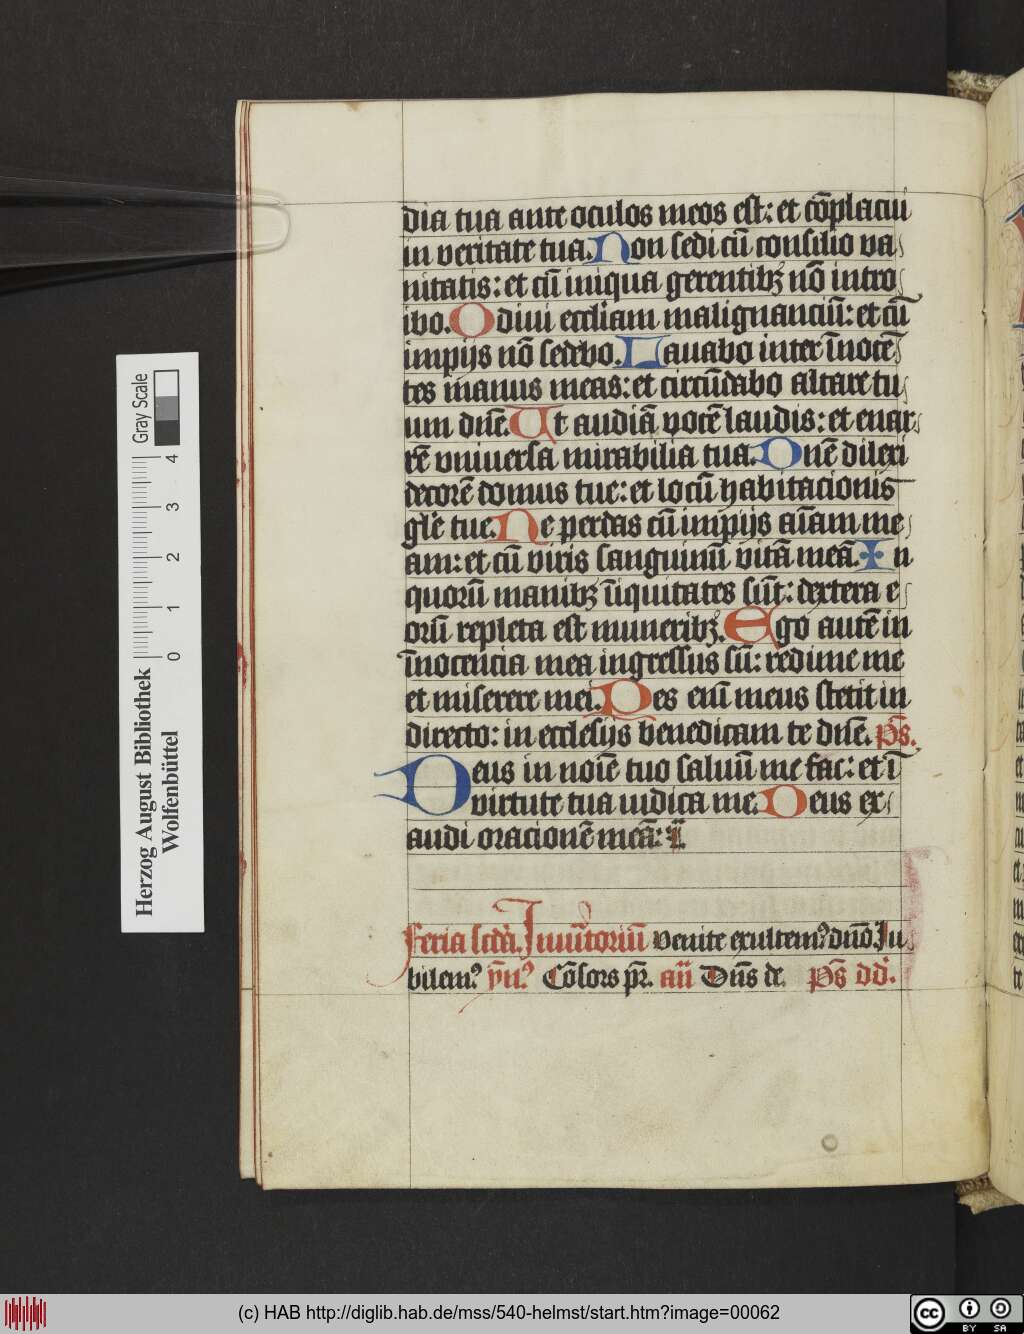 dia tua ante oculos meos est: et cōplacui
in veritate tua. Non sedi cū consilio va
nitatis: et cū iniqua gerentibꝫ nō intro
ibo. Odiui eccliam malignanciū: et cū
impijs nō sedebo. Lauabo inter īnocē
tes manus meas: et circūdabo altare tu
um dn̄e. Ut audiā vocē laudis: et enar
rē vniuersa mirabilia tua. Dn̄ē dilexi
decorē domus tue: et locū habitacionis
gl̄ie tue. Ne perdas cū impijs aīam me
am: et cū viris sanguinū vitā meā. In
quorū manibꝫ īiquitates sūt: dextera e
orū repleta est muneribꝫ. Ego autē in
īnocencia mea ingressus sū: redime me
et miserere mei. Pes eni̅ meus stetit in
directo: in ecclesijs benedicam te dn̄e. p̄s.
Deus in noīe tuo saluū me fac: et ī
virtute tua iudica me. Deus ex
audi oracionē meā:
Feria scd̄a. Inuitoriū Venite exultemꝰ dn̄o. Ju
bilemꝰ ym̄ꝰ Cōsors pr̄. an̄ Dn̄s de. Ps̄ dd.
Herzog August Bibliothek
Wolfenbüttel
0 1 2 3 4
Gray Scale
(c) HAB http://diglib.hab.de/mss/540-helmst/start.htm?image=00062
cc BY SA